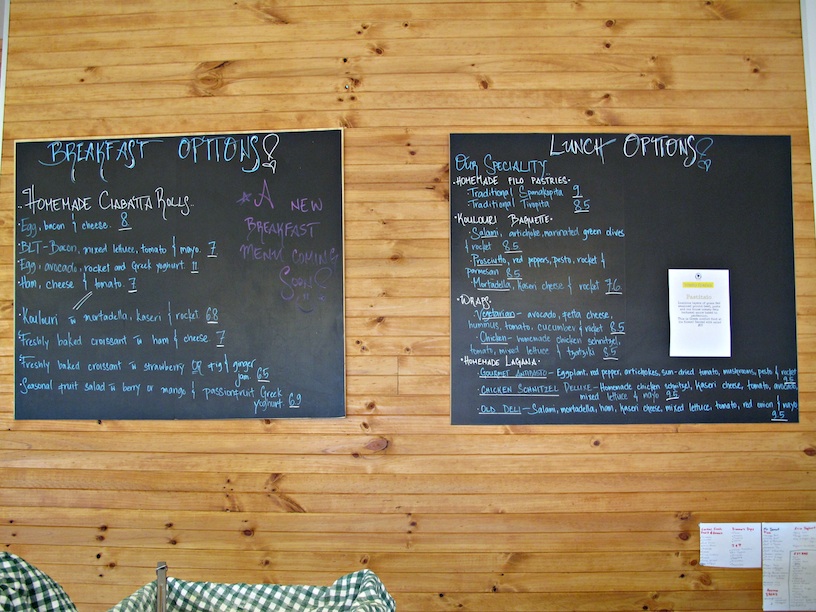 BREAKFAST OPTIONS!
HOMEMADE CIABATTA ROLLS
Egg, bacon & cheese. 8
BLT - Bacon, mixed lettuce, tomato & mayo. 7
Egg, avocado, rocket and Greek yoghurt. 11
Ham, cheese & tomato. 7
Koulouri w mortadella, kaseri & rocket. 6.8
Freshly baked croissant w ham & cheese 7
Freshly baked croissant w strawberry OR fig & ginger
jam. 6.5
Seasonal fruit salad w berry or mango & passionfruit Greek
yoghurt. 6.9
A NEW
BREAKFAST
MENU COMING
SOON!
LUNCH OPTIONS!
OUR SPECIALITY...
HOMEMADE FILO PASTRIES.
Traditional Spanakopita 9
Traditional Tiropita 8.5
KOULOURI BAGUETTE.
Salami, artichoke, marinated green olives
& rocket 8.5
Prosciutto, red peppers, pesto, rocket &
parmesan 8.5
Mortadella, kaseri cheese & rocket 7.6
WRAPS.
Vegetarian - avocado, fetta cheese,
hummus, tomato, cucumber & rocket 8.5
Chicken - homemade chicken schnitzel,
tomato, mixed lettuce & tzatziki 8.5
HOMEMADE LAGANA
GOURMET ANTIPASTO - Eggplant, red pepper, artichokes, sun-dried tomato, mushrooms, pesto & rocket
9.5
CHICKEN SCHNITZEL DELUXE - Homemade chicken schnitzel, kaseri cheese, tomato, avocado,
mixed lettuce & mayo 9.5
OLD DELI - Salami, mortadella, ham, kaseri cheese, mixed lettuce, tomato, red onion & mayo
9.5